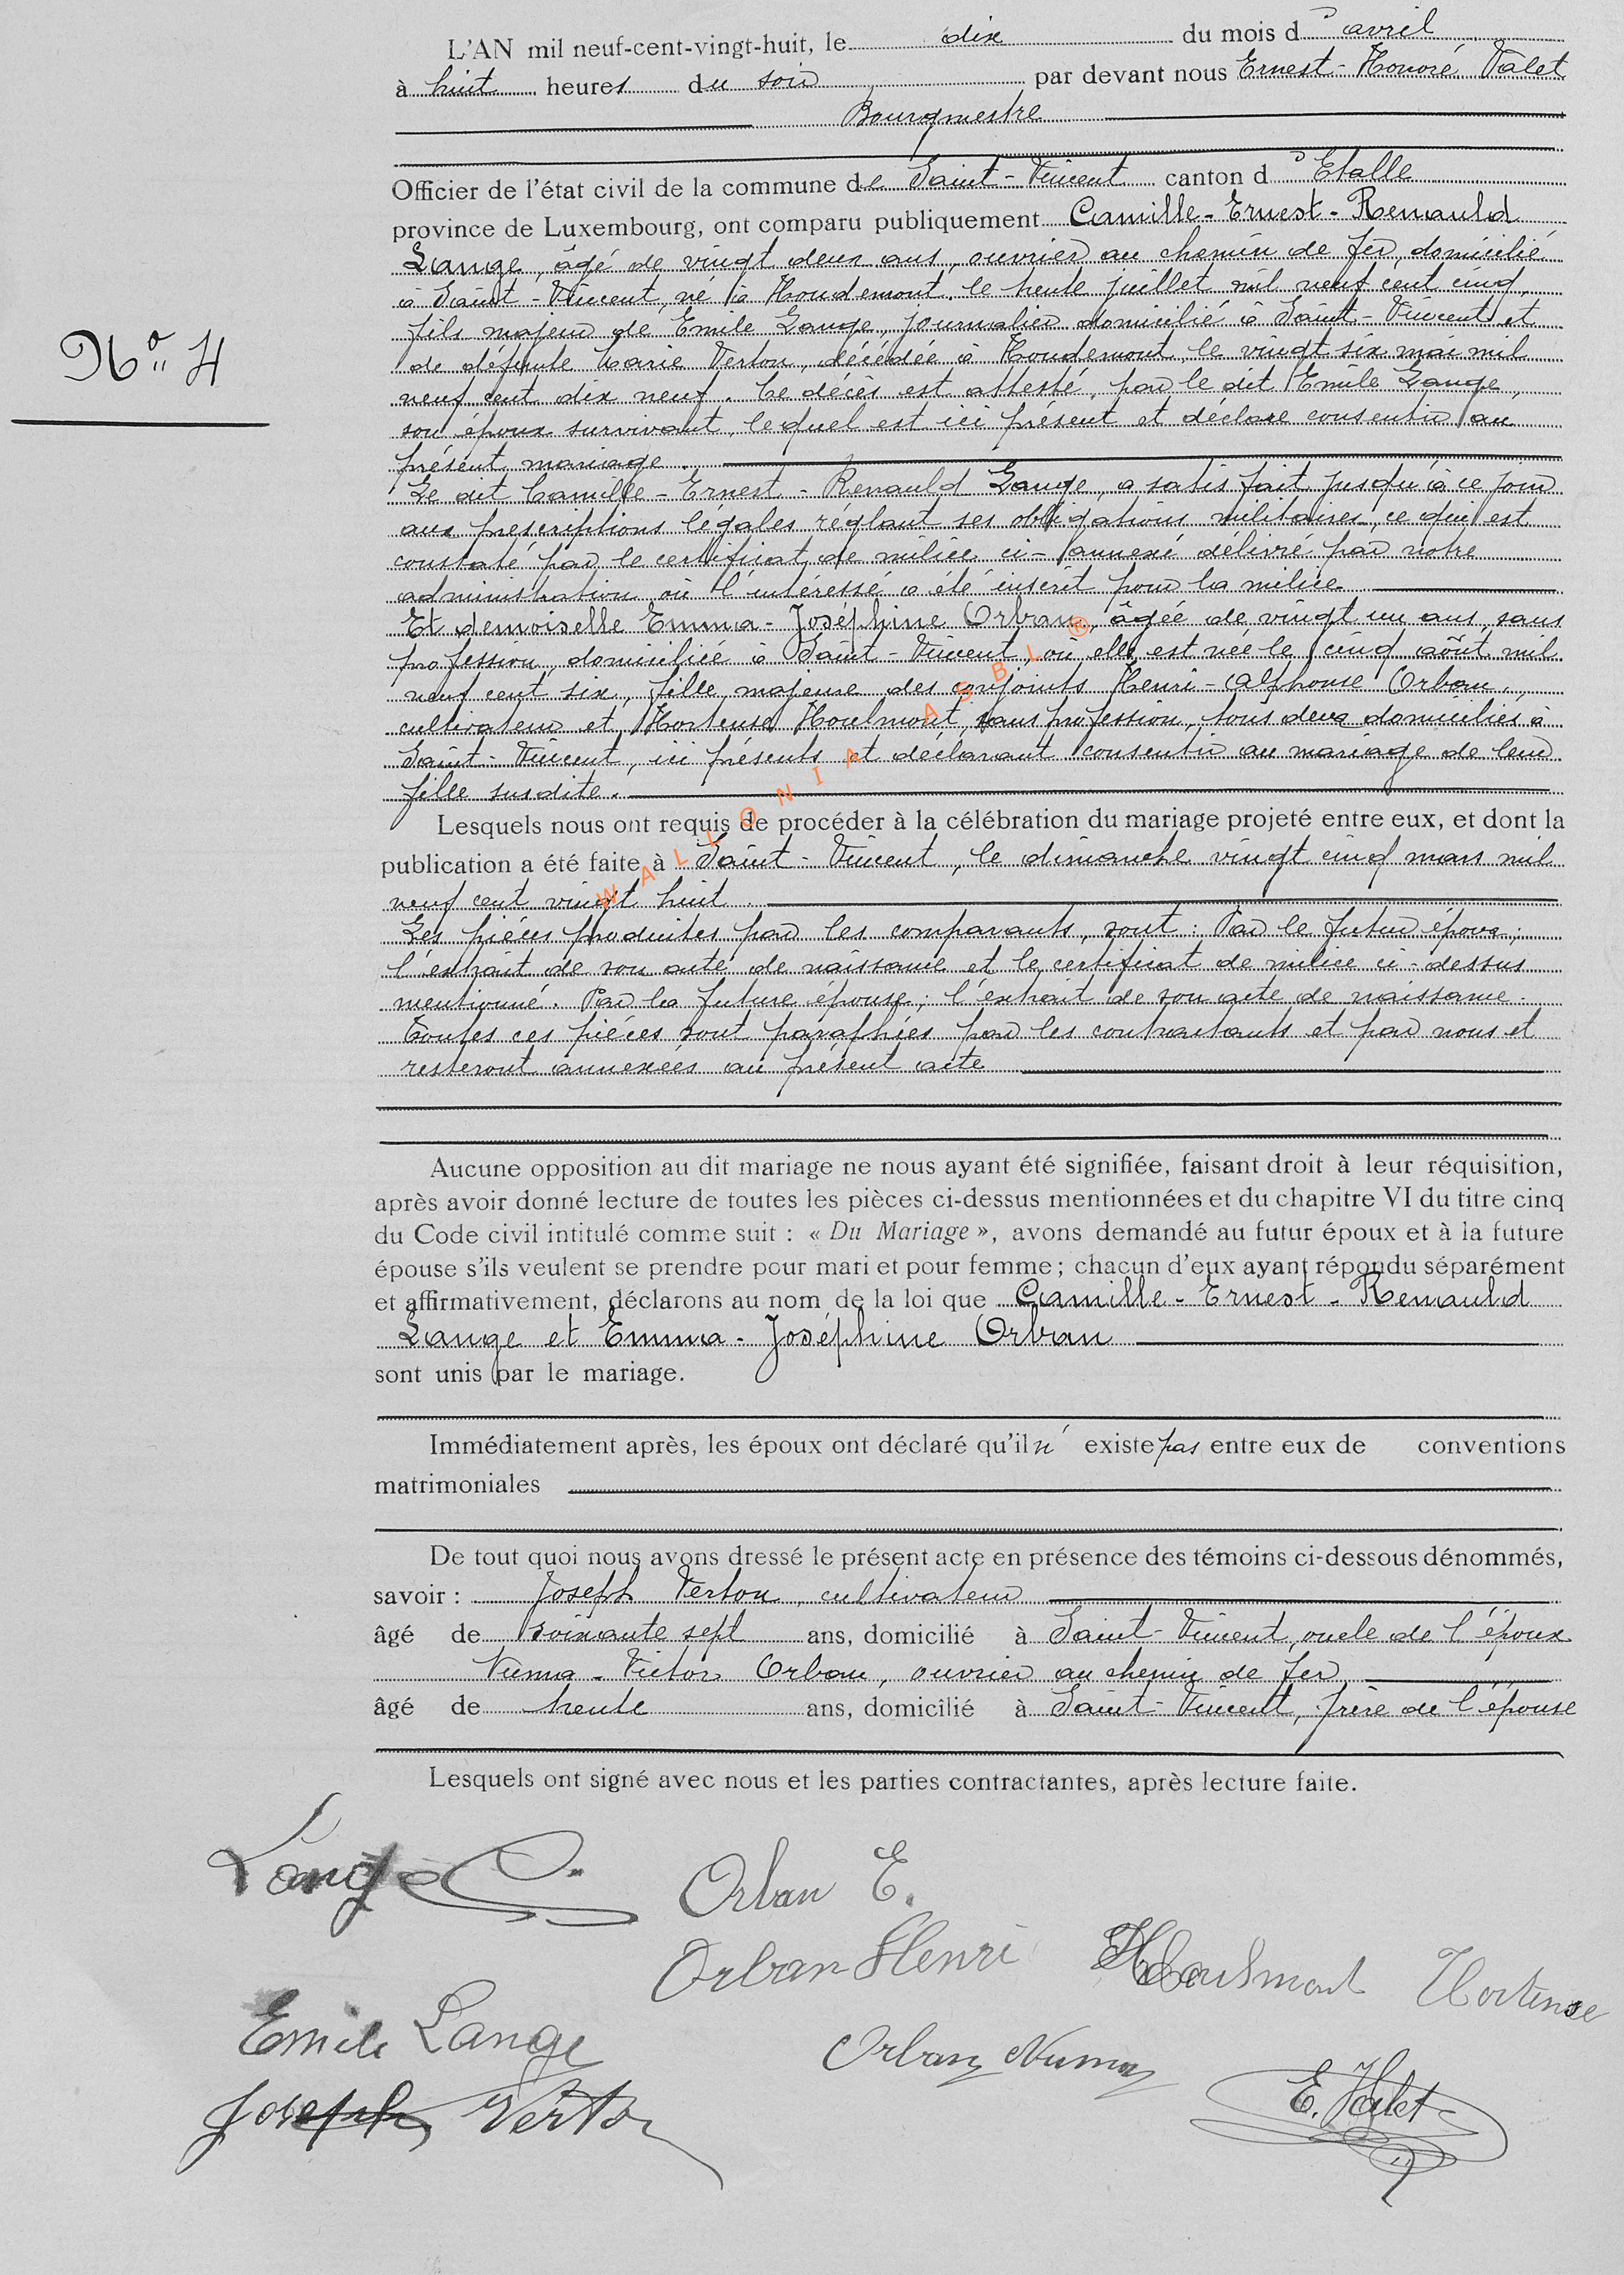 L'AN mil neuf-cent-vingt-huit, le dix du mois d' avril
à huit heures du soir par devant nous Ernest-Honoré Valet
Bourgmestre
Officier de l'état civil de la commune de Saint-Vincent canton d' Etalle
province de Luxembourg, ont comparu publiquement Camille-Ernest-Renauld
Lange, âgé de vingt deux ans, ouvrier au chemin de fer, domicilié
à Saint-Vincent, né à Houdemont, le trente juillet mil neuf cent cinq,
fils majeur de Emile Lange, journalier domicilié à Saint-Vincent et
de défunte Marie Verton, décédée à Houdemont, le vingt six mai mil
neuf cent dix neuf. Ce décès est attesté, par le dit Emile Lange,
son époux survivant, lequel est ici présent et déclare consentir au
présent mariage.
Le dit Camille-Ernest-Renauld Lange, a satisfait jusqu'à ce jour
aux prescriptions légales réglant ses obligations militaires, ce qui est
constaté par le certificat de milice ci-annexé délivré par notre
administration où l'intéressé a été inscrit pour la milice.
Et demoiselle Emma-Joséphine Orban, âgée de vingt un ans, sans
profession, domiciliée à Saint-Vincent, où elle est née le cinq août mil
neuf cent six, fille majeure des conjoints Henri-Alphonse Orban,
cultivateur et Hortense Houlmont, sans profession, tous deux domiciliés à
Saint-Vincent, ici présents et déclarant consentir au mariage de leur
fille susdite.
WALLONIA ASBL ®
Lesquels nous ont requis de procéder à la célébration du mariage projeté entre eux, et dont la
publication a été faite à Saint-Vincent, le dimanche vingt cinq mars mil
neuf cent vingt huit.
Les pièces produites par les comparants, sont: Par le futur époux;
l'extrait de son acte de naissance et le certificat de milice ci-dessus
mentionné. Par la future épouse; l'extrait de son acte de naissance.
Toutes ces pièces sont paraphées par les contractants et par nous et
resteront annexées au présent acte
Aucune opposition au dit mariage ne nous ayant été signifiée, faisant droit à leur réquisition,
après avoir donné lecture de toutes les pièces ci-dessus mentionnées et du chapitre VI du titre cinq
du Code civil intitulé comme suit : « Du Mariage », avons demandé au futur époux et à la future
épouse s'ils veulent se prendre pour mari et pour femme; chacun d'eux ayant répondu séparément
et affirmativement, déclarons au nom de la loi que Camille-Ernest-Renauld
Lange et Emma-Joséphine Orban
sont unis par le mariage.
Immédiatement après, les époux ont déclaré qu'il n' existe pas entre eux de conventions
matrimoniales
De tout quoi nous avons dressé le présent acte en présence des témoins ci-dessous dénommés,
savoir : Joseph Verton, cultivateur
âgé de soixante sept ans, domicilié à Saint-Vincent, oncle de l'époux
Numa-Victor Orban, ouvrier au chemin de fer
âgé de trente ans, domicilié à Saint-Vincent, frère de l'épouse
Lesquels ont signé avec nous et les parties contractantes, après lecture faite.
N° 4
Lange
Orban E.
Orban Henri Houlmont Hortense
Emile Lange
Orban Numa
E. Valet
Joseph Verton